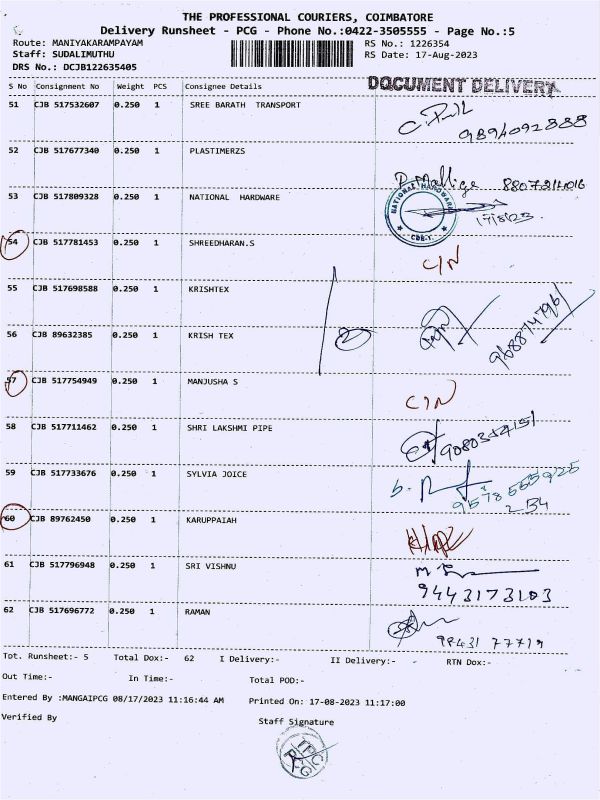 THE PROFESSIONAL COURIERS, COIMBATORE
Delivery Runsheet - PCG - Phone No.:0422-3505555 - Page No.:5
Route: MANIYAKARAMPAYAM RS No.: 1226354
Staff: SUDALIMUTHU RS Date: 17-Aug-2023
DRS No.: DCJB122635405
DOCUMENT DELIVERY
S No Consignment No Weight PCS Consignee Details
51 CJB 517532607 0.250 1 SREE BARATH TRANSPORT
9894092888
52 CJB 517677340 0.250 1 PLASTIMERZS
53 CJB 517809328 0.250 1 NATIONAL HARDWARE
NATIONAL HARDWARE
CBE-
54 CJB 517781453 0.250 1 SHREEDHARAN.S
C/N
55 CJB 517698588 0.250 1 KRISHTEX
2
56 CJB 89632385 0.250 1 KRISH TEX
57 CJB 517754949 0.250 1 MANJUSHA S
C/N
58 CJB 517711462 0.250 1 SHRI LAKSHMI PIPE
59 CJB 517733676 0.250 1 SYLVIA JOICE
234
60 CJB 89762450 0.250 1 KARUPPAIAH
61 CJB 517796948 0.250 1 SRI VISHNU
9443173103
62 CJB 517696772 0.250 1 RAMAN
99431 77719
Tot. Runsheet:- 5 Total Dox:- 62 I Delivery:- II Delivery:- RTN Dox:-
Out Time:- In Time:- Total POD:-
Entered By :MANGAIPCG 08/17/2023 11:16:44 AM Printed On: 17-08-2023 11:17:00
Verified By Staff Signature